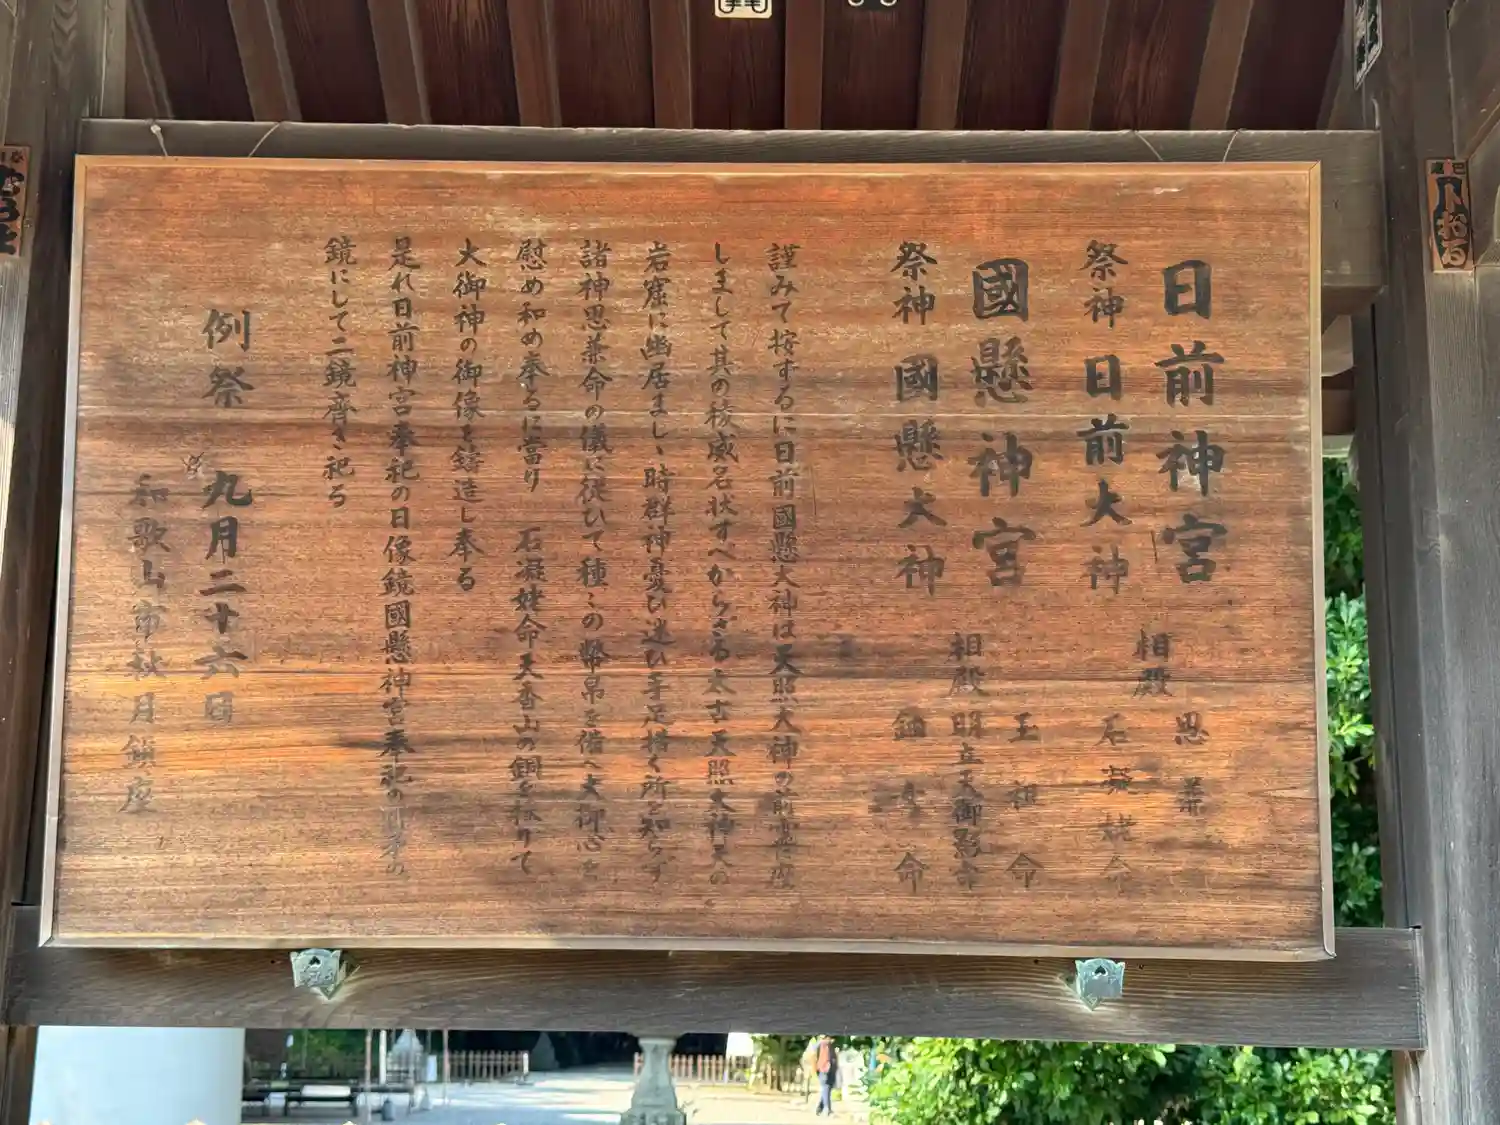 日前神宮
祭神 日前大神
相殿 思兼命
石凝姥命
國懸神宮
祭神 國懸大神
相殿 玉祖命
明立天御影命
鈿女命
謹みて按するに日前國懸大神は天照大神の前霊に座
しまして其の稜威名状すべからざる太古天照大神天の
岩窟に幽居ましゝ時群神憂ひ迷ひ手足措く所を知らず
諸神思兼命の儀に従ひて種々の幣帛を備へ大御心を
慰め和め奉るに當り 石凝姥命天香山の銅を採りて
大御神の御像を鋳造し奉る
是れ日前神宮奉祀の日像鏡國懸神宮奉祀の日矛の
鏡にして二鏡齊き祀る
例祭 九月二十六日
和歌山市秋月鎮座